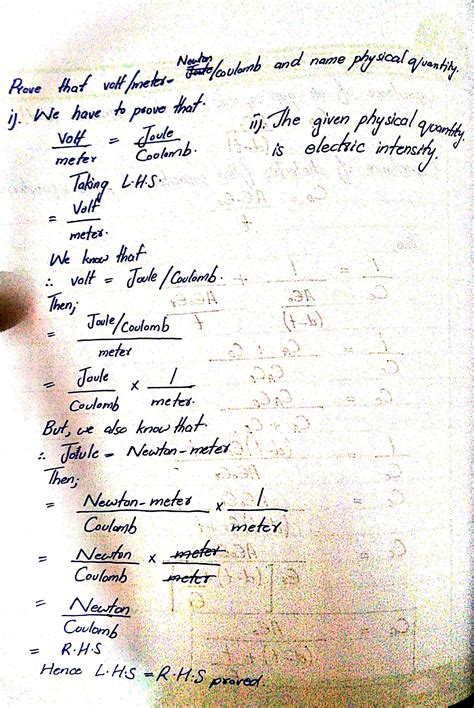 Prove that volt/meter = Newton/coulomb and name physical quantity.
i). We have to prove that.
Volt / meter = Joule / Coulomb.
ii). The given physical quantity
is electric intensity.
Taking L.H.S.
= Volt / meter.
We know that
∴ volt = Joule/Coulomb.
Then;
= Joule/Coulomb / meter
= Joule / Coulomb × 1 / meter.
But, we also know that.
∴ Joule = Newton-meter
Then;
= Newton-meter / Coulomb × 1 / meter.
= Newton / Coulomb × meter / meter
= Newton / Coulomb
= R.H.S
Hence L.H.S = R.H.S proved.